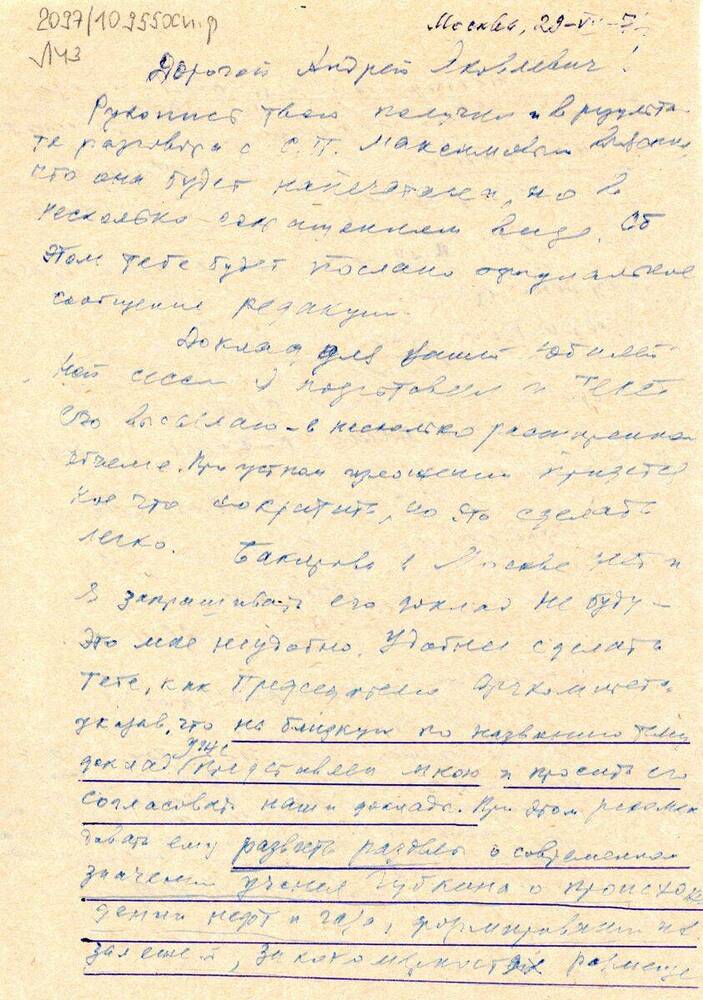 2097/10955
Москва, 29-VII-71
Дорогой Андрей Яковлевич!
Рукопись твою получил и в результа
те разговора с С.П. Максимовым
что она будет напечатана, но в
несколько сокращенном виде. Об
этом тебе будет послано официальное
сообщение редакции.
Доклад для вашей юбилей
ной сессии я подготовил и текст
его высылаю в несколько расширенном
объеме. При устном изложении придется
кое что сократить, но это сделать
легко. Бакирова в Москве нет и
я запрашивать его доклад не буду –
это мне неудобно. Удобнее сделать
тебе, как Председателю Оргкомитета,
указав, что на близкую по названию тему
доклад уже представлен мною и просить его
согласовать наши доклады. При этом рекомен
довать ему развить разделы о современном
значении учения Губкина о происхож
дении нефти и газа, формировании их
залежей, закономерностях размеще